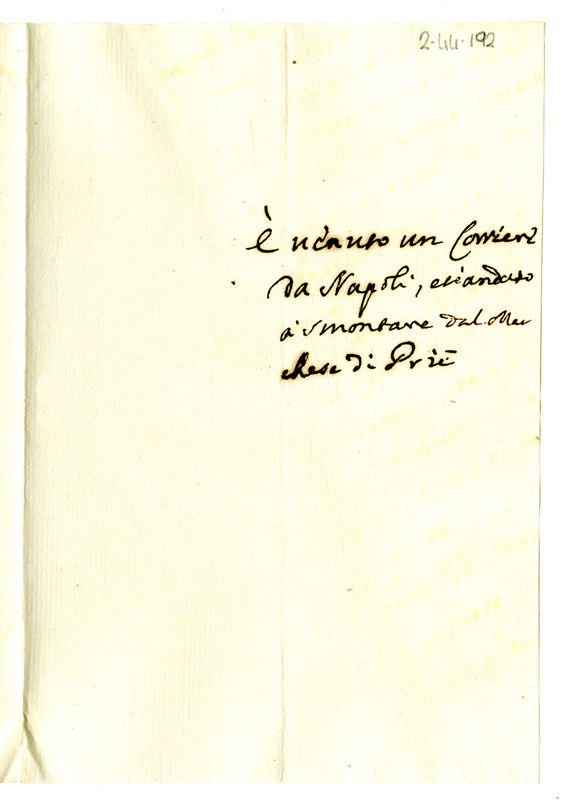 2-44-192
È uenuto un Corriere
da Napoli, et è andato
à smontare dal Mar
chese di Priè